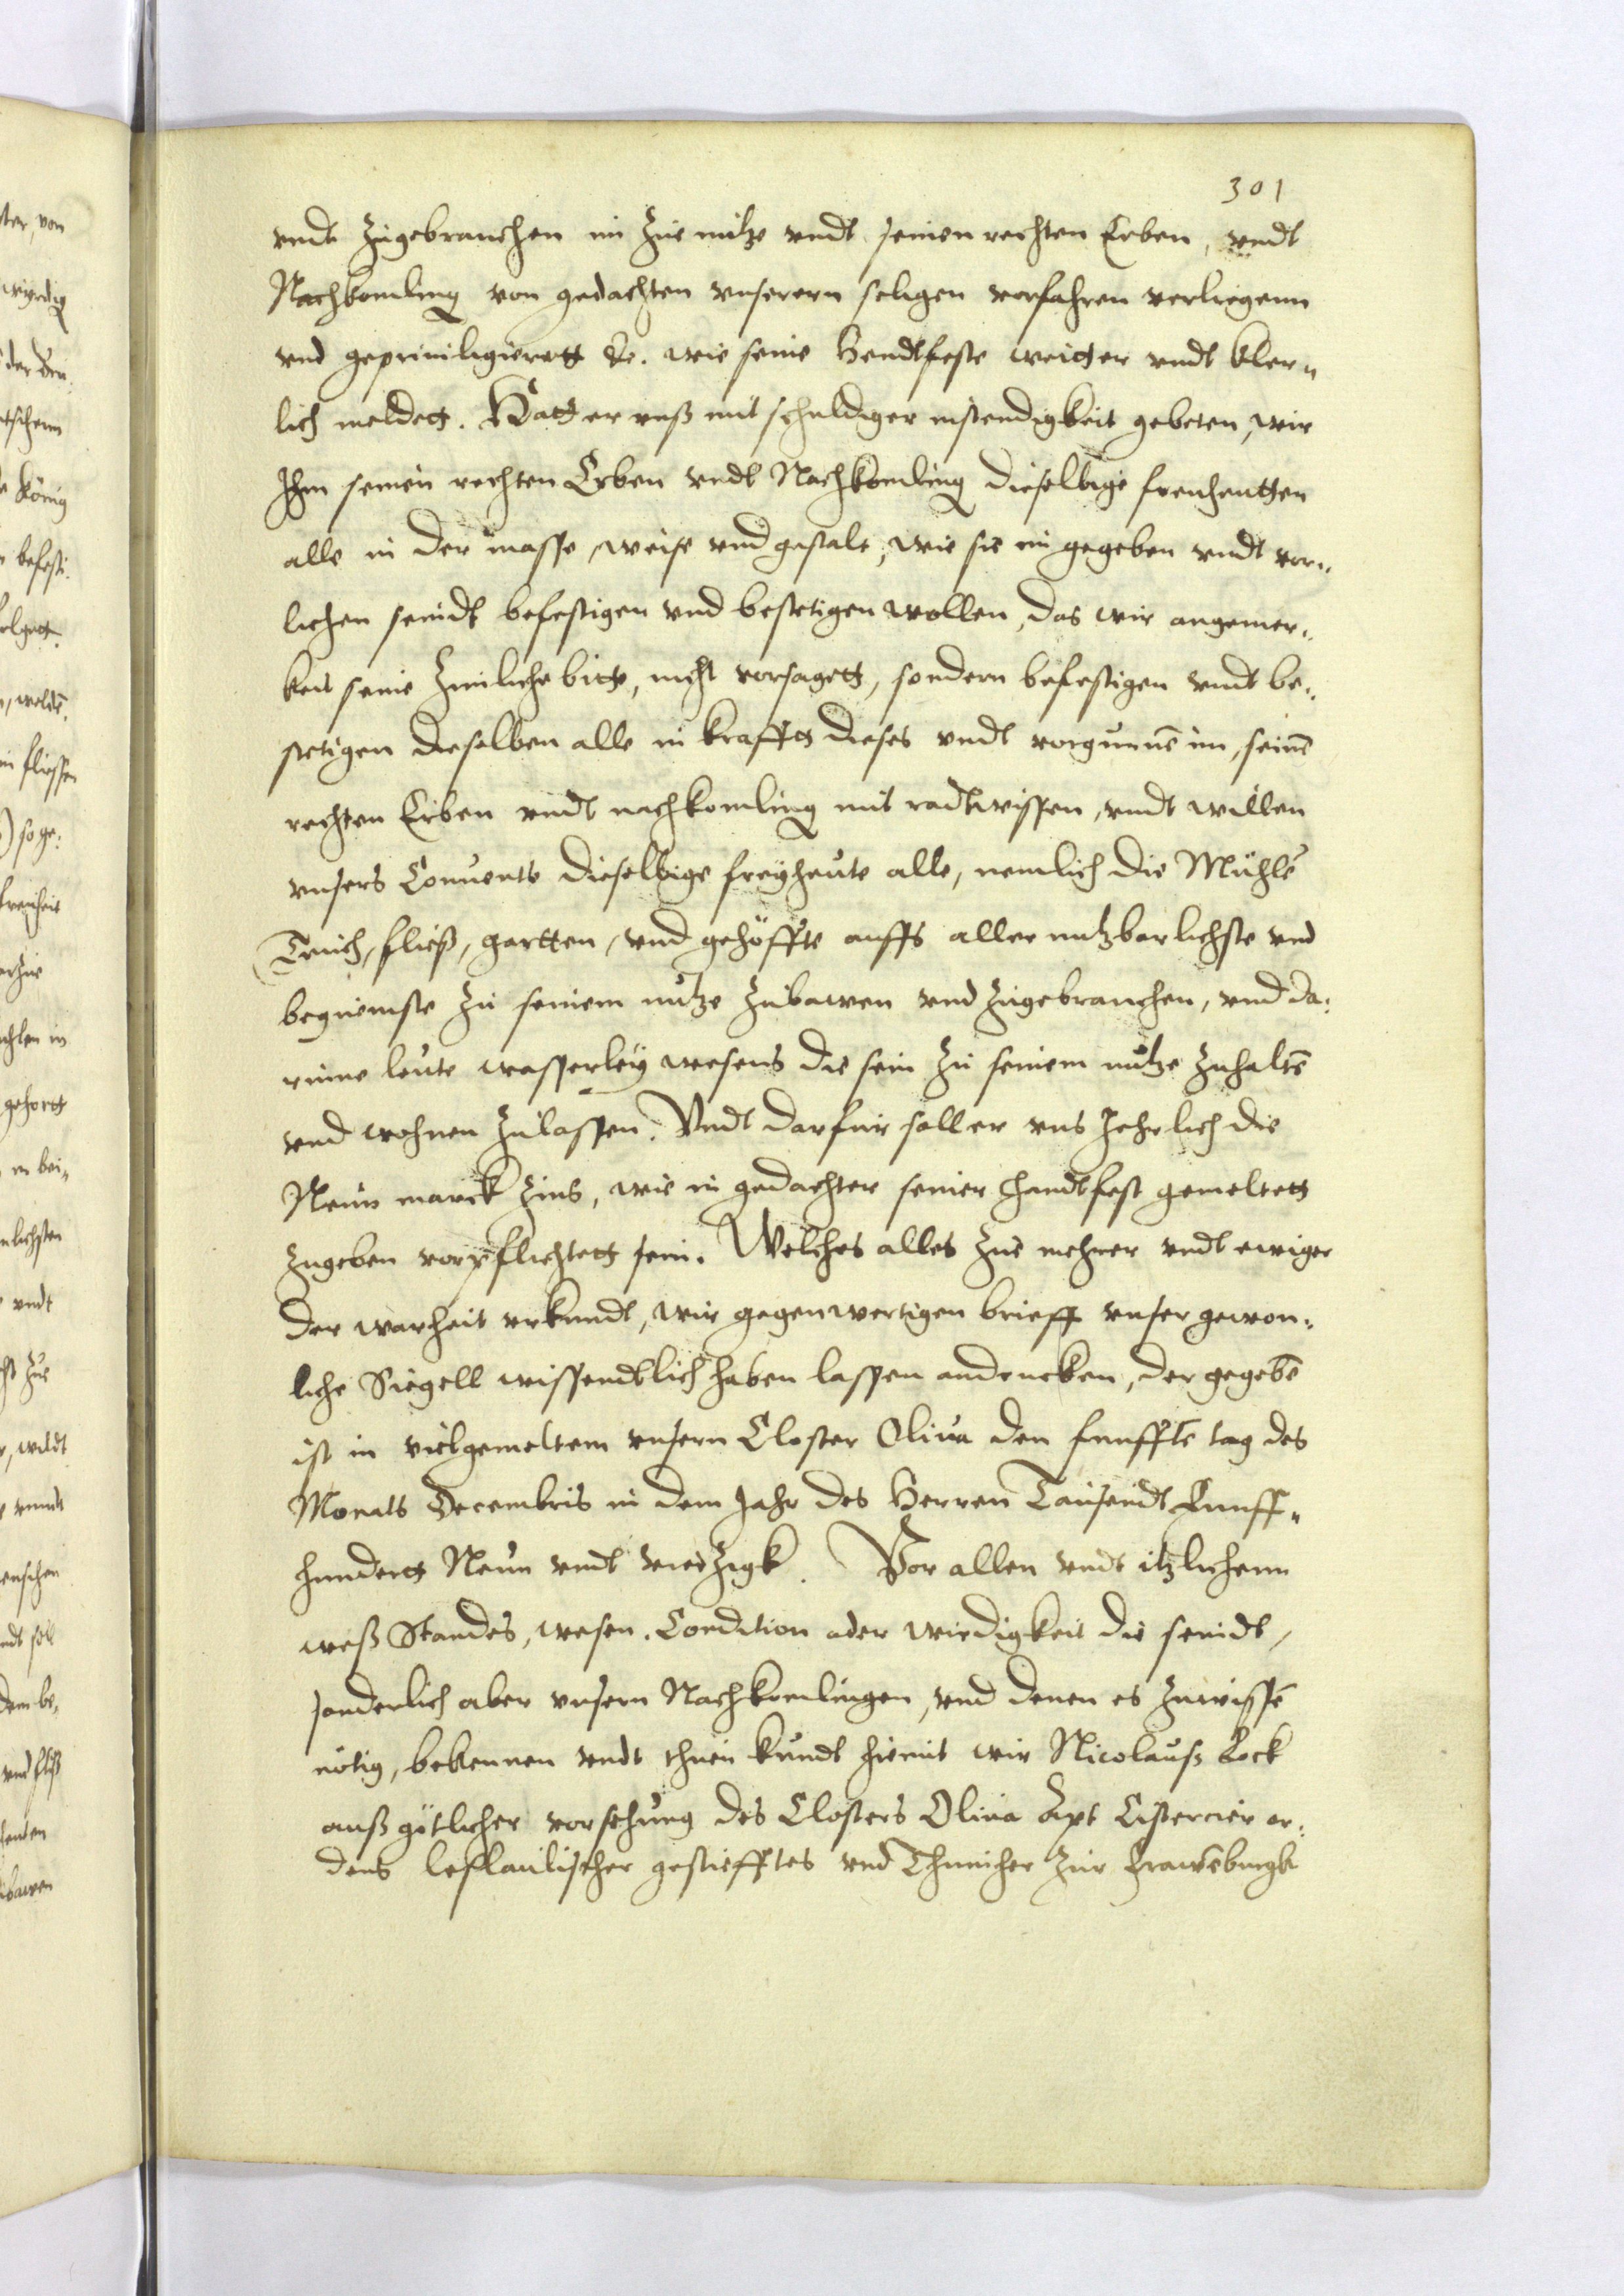 301
vndt zugebrauchen im zue nutze vndt seinen rechten Erben, vndt
Nachkomling von gedachten vnserern seligen vorfahren verliegenn
vnd gepriuiligierett &c. wie seine Handtfeste weitter vndt kler„
lich meldett. Hatt er vnß mit schuldiger instendigkeit gebeten, wir
Ihm seinen rechten Erben vndt Nachkomling dieselbige freiheutten
alle in der masse, weise vnd gestalt, wie sie im gegeben vndt vor„
liehen seindt befestigen vnd bestetigen wollen, das wir angemer„
ket seine Zimliche bitte, nicht vorsagett, sondern befestigen vndt be„
stetigen dieselben alle in krafft dieses vndt vorgunnē im, seinē
rechten Erben vndt nachkomling mit radt wissen, vndt willen
vnsers Conuents dieselbige freyheute alle, nemlich die Mühlē
Teuich, fließ, gartten, vnd gehöffte auffs aller nutzbarlichste vnd
bequemste zu seinem nutze zubawen vnd zugebrauchen, vnd da„
rinne leute wasserley wesens die sein zu seinem nutze zuhaltē
vnd wohnen zulassen. Vndt darfur soll er vns Jehrlich die
Neun marck Zins, wie in gedachter seiner Handtfest gemeltett
zugeben vorpflichtett sein. Welches alles zue mehrer vndt ewiger
der warheit vrkundt, wir gegenwertigen brieff vnser gewon„
liche Siegell wissendtlich haben lassen andrucken, der gegebē
ist in vielgemeltem vnsern Closter Oliua den funfftē tag des
Monats Decembris in dem Jahr des Herren Tausendt Funff„
hundertt Neun vndt vierzigk. Vor allen vndt itzlichenn
weß Standes, wesen. Condition ader wirdigkeit die seindt,
sonderlich aber vnsern Nachkomlingen, vnd denen es zuwissē
nötig, bekennen vndt thuen kundt hiemit wir Nicolauß Lock
auß götlicher vorsehung des Closters Oliua Apt Cistercier or„
dens leslauischer gestiefftes vnd Thumher zur Frawēburgk